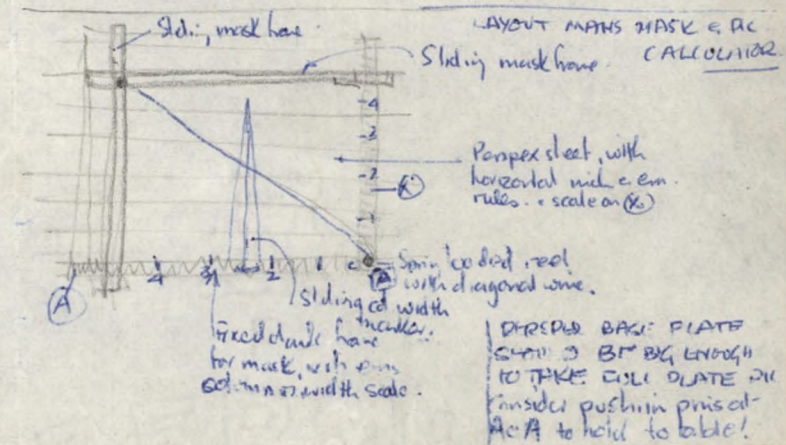 LAYOUT MANS MASK & PIC
CALCULATOR
Sliding mask frame
Sliding mask frame.
4
3
2
1
X
Perspex sheet, with
horizontal inch & em
rules. & scale on X
4
3
2
1
A
A
Spring loaded reel
with diagonal wire.
Sliding col width
marker.
Fixed frame
for mask, with ems
column & width scale.
BASE PLATE
BE BIG ENOUGH
TO TAKE FULL PLATE PIC
Consider push in pins at
A & A to hold to table!